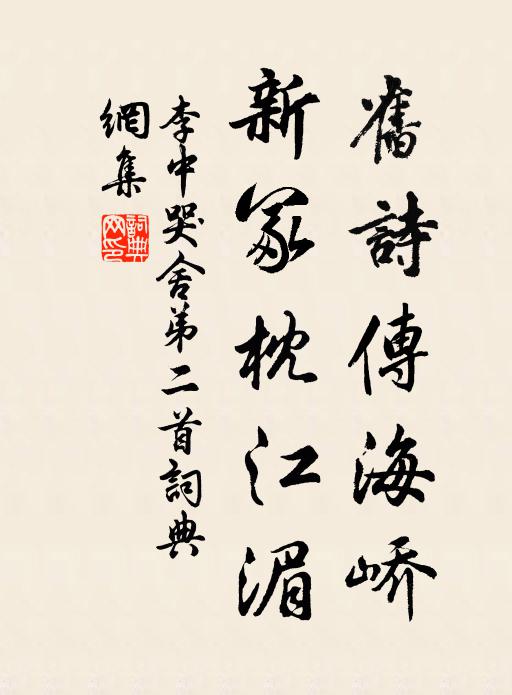 舊詩傳海嶠
新冢枕江湄
李中哭舍弟二首詞典
網集
詞典網印